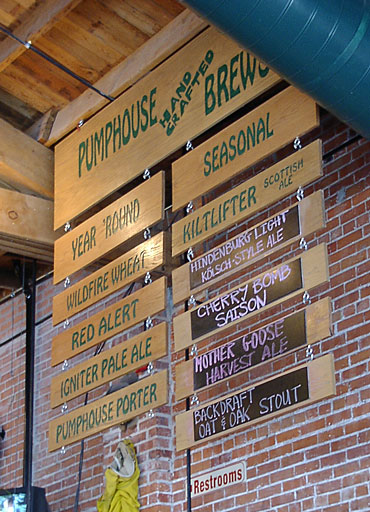 PUMPHOUSE HAND CRAFTED BREWS
YEAR 'ROUND
WILDFIRE WHEAT
RED ALERT
IGNITER PALE ALE
PUMPHOUSE PORTER
SEASONAL
KILTLIFTER SCOTTISH ALE
HINDENBURG LIGHT
KÖLSCH-STYLE ALE
CHERRY BOMB
SAISON
MOTHER GOOSE
HARVEST ALE
BACKDRAFT
OAT & OAK STOUT
Restrooms